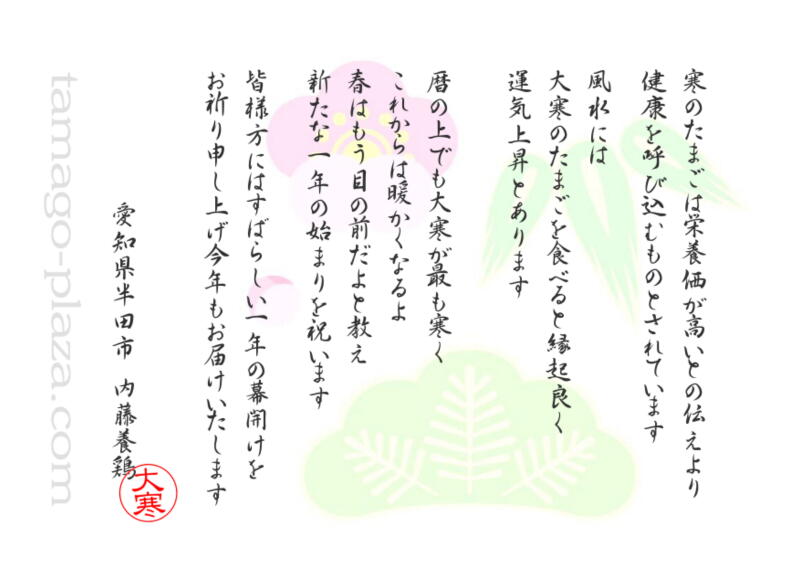 寒のたまごは栄養価が高いとの伝えより
健康を呼び込むものとされています
風水には
大寒のたまごを食べると縁起良く
運気上昇とあります
暦の上でも大寒が最も寒く
これからは暖かくなるよ
春はもう目の前だよと教え
新たな一年の始まりを祝います
皆様方にはすばらしい一年の幕開けを
お祈り申し上げ今年もお届けいたします
愛知県半田市 内藤養鶏
大寒
tamago-plaza.com